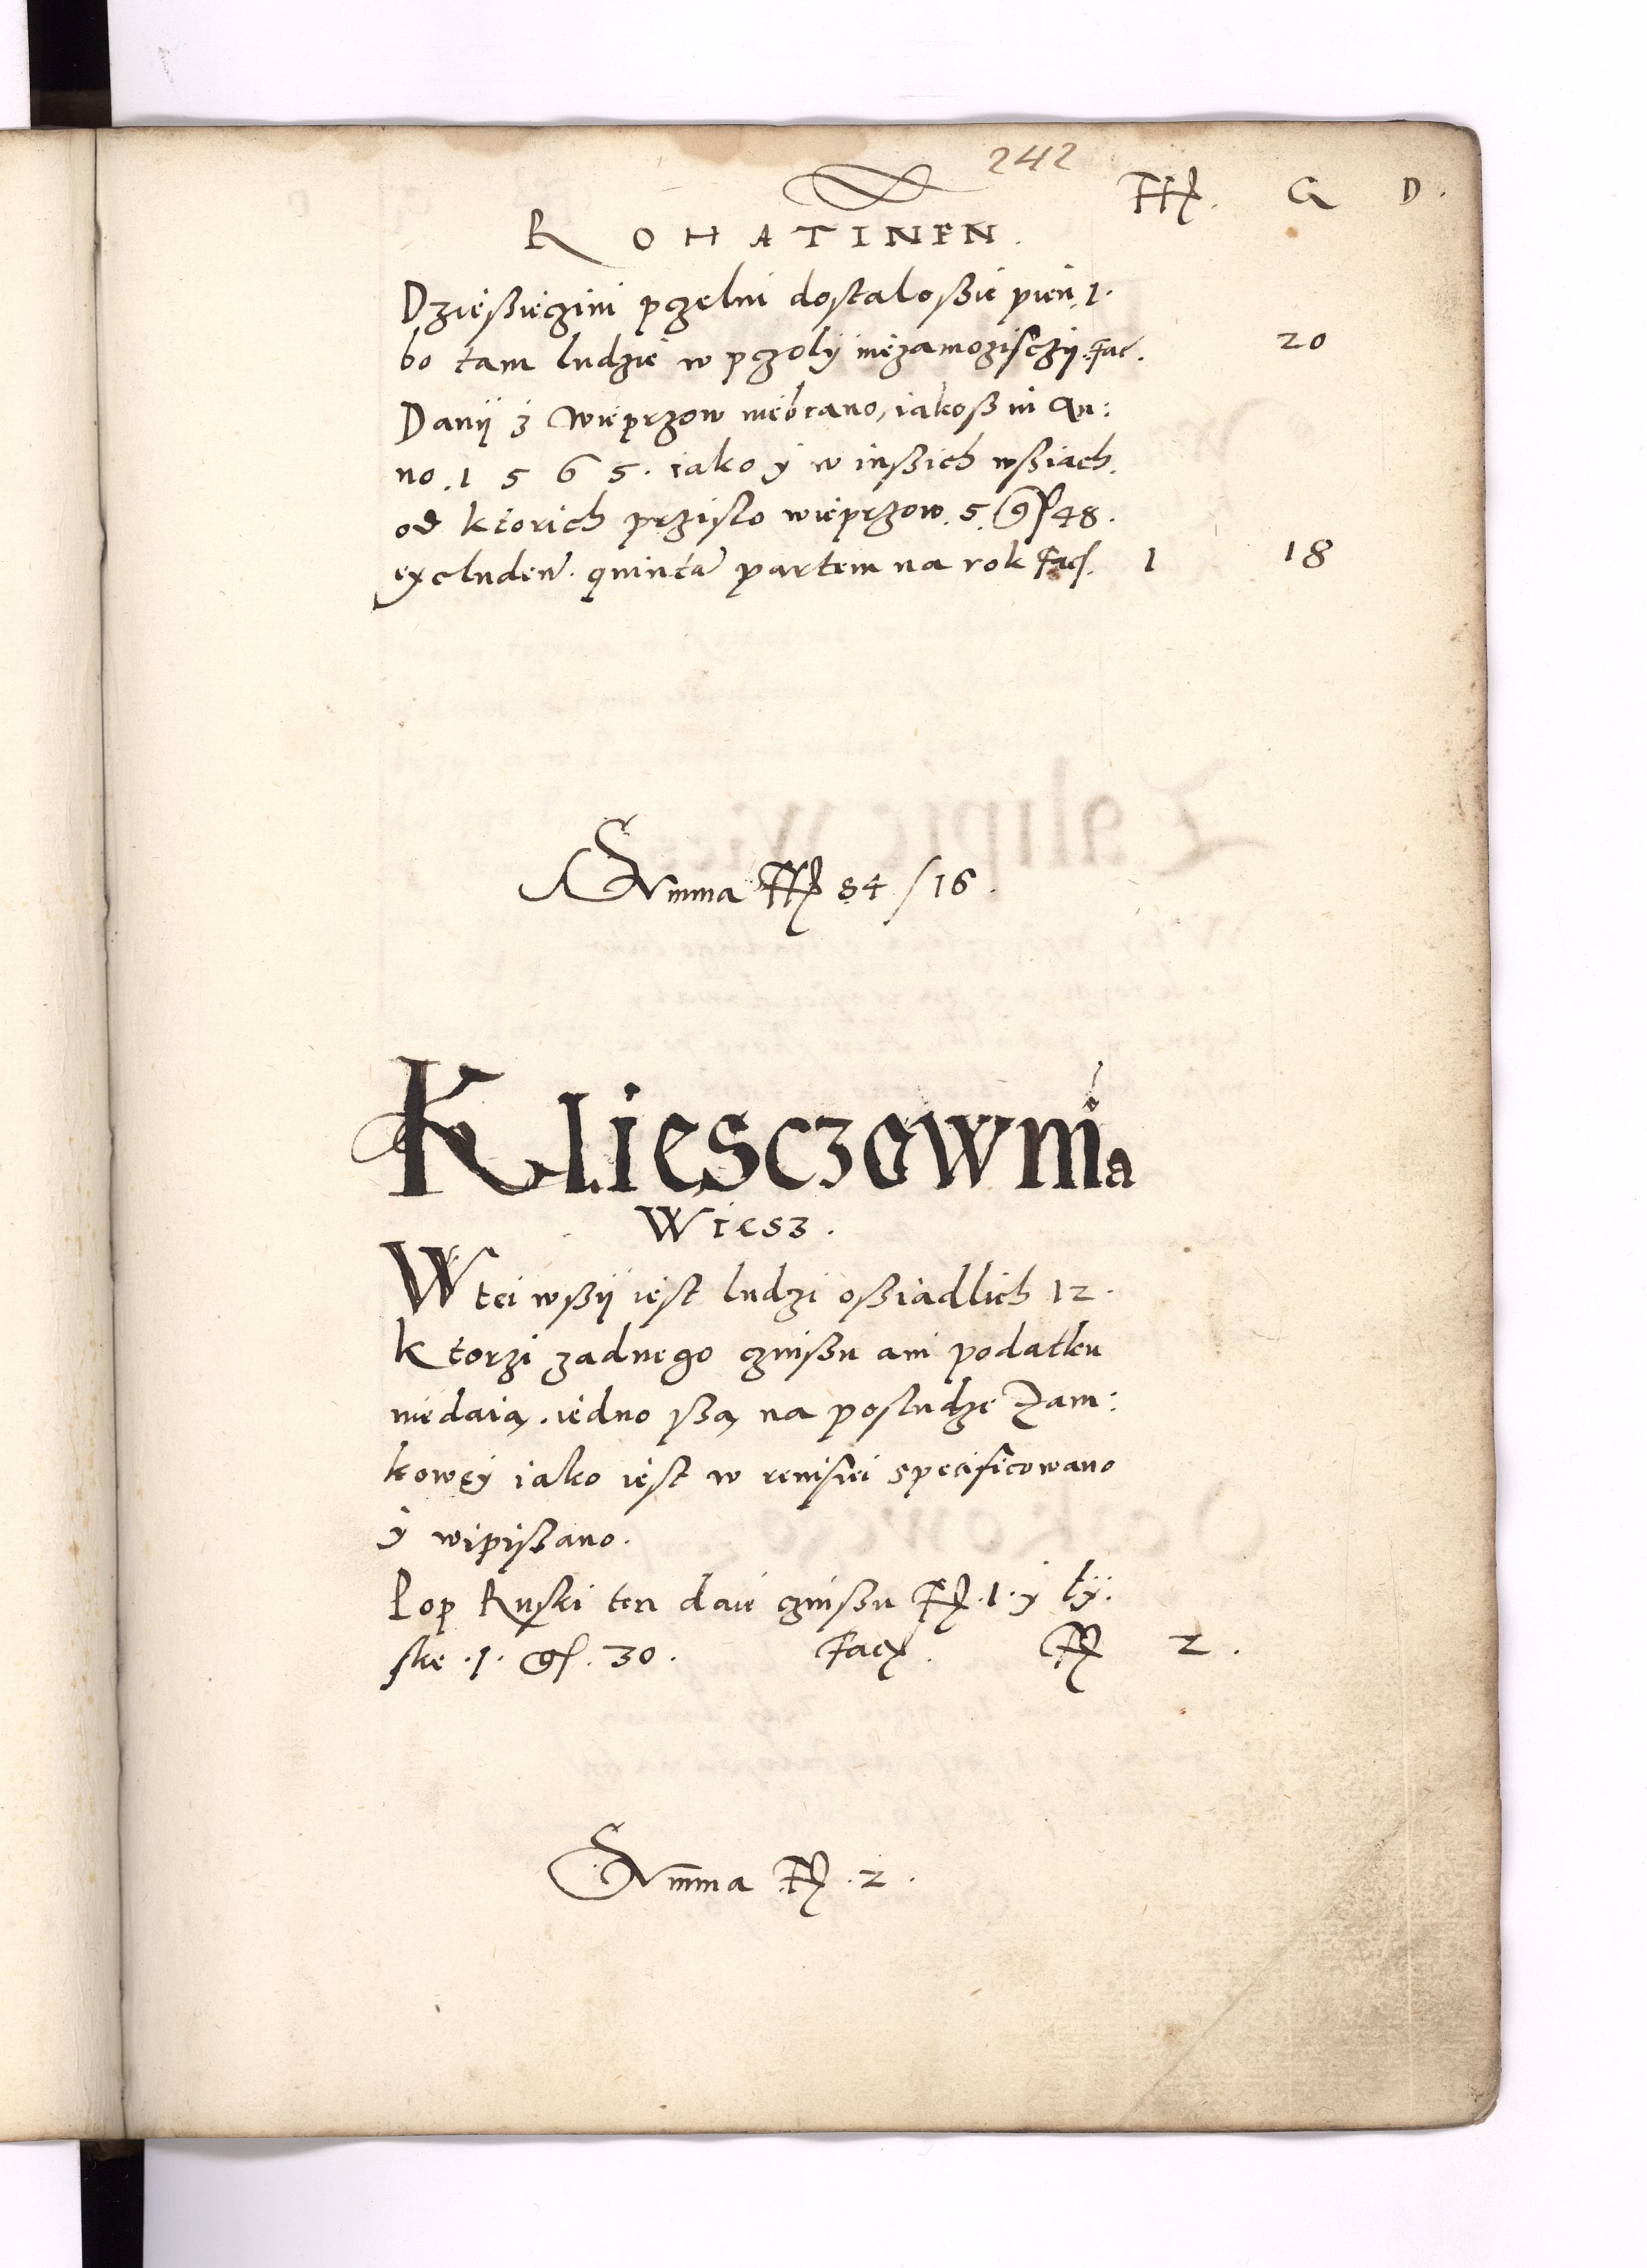 242
Fl. G D.
ROHATINEN.
Dzießięczini pczelni dostaloßie pień 1.
bo tam ludzie w pczoly niezamozisczÿ. Fac. 20
Danÿ z wieprzow niebrano, iakoß in An:
no. 1565. iako ÿ w inßich wßiach.
od ktorich przislo wieprzow. 5. 48.
excluden. quinta partem na rok Fac. 1 18
Summa Fl 54/16.
Kliesczewnia
Wiesz.
W tei wßÿ iest ludzi oßiadlich 12.
Ktorzi zadnego czinßu ani podatku
niedaią. iedno ßą na posludze Zam:
kowey iako iest w reuisiei specificowano
ÿ wipißano.
Pop Ruski ten daie czinßu Fl. 1. ÿ lÿ:
skę .1. gr. 30. Fac. Fl 2.
Summa Fl. 2.